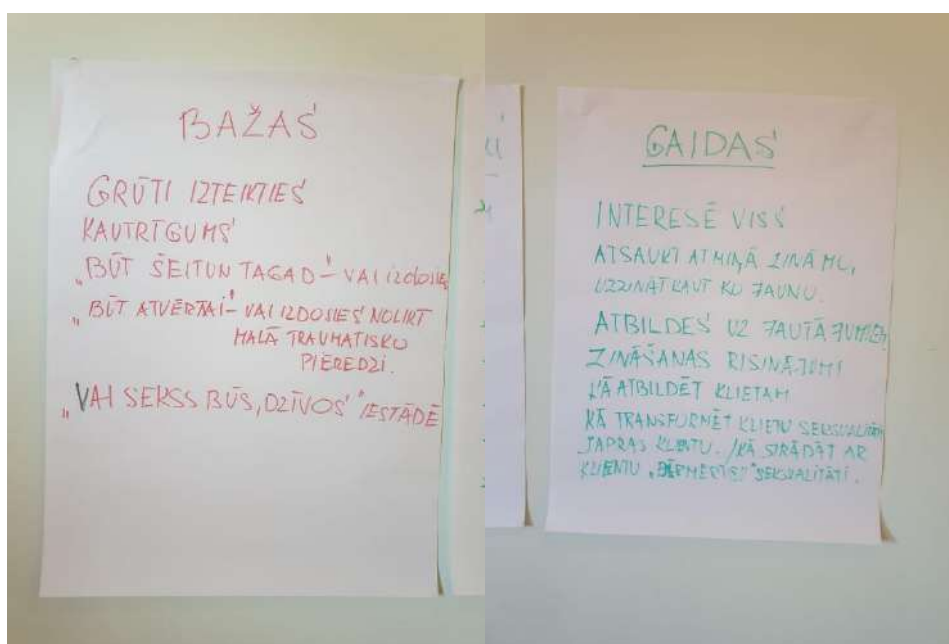 BAŽAS
GRŪTI IZTEIKTIES
KAUTRĪGUMS
„BŪT ŠEIT UN TAGAD" – VAI IZDOSIES
„BŪT ATVĒRTAI" – VAI IZDOSIES NOLIKT
MALĀ TRAUMATISKO
PIEREDZI.
„VAI SEKSS BŪS, DZĪVOS" IESTĀDĒ
GAIDAS
INTERESĒ VISS
ATSAUKT ATMIŅĀ ZINĀMO,
UZZINĀT KAUT KO JAUNU.
ATBILDES UZ JAUTĀJUMIEM
ZINĀŠANAS RISINĀJUMI
KĀ ATBILDĒT KLIETAM
KĀ TRANSFORMĒT KLIETU SEKSUALITĀTI
KLIENTU. / KĀ STRĀDĀT AR
KLIENTU SEKSUALITĀTI.